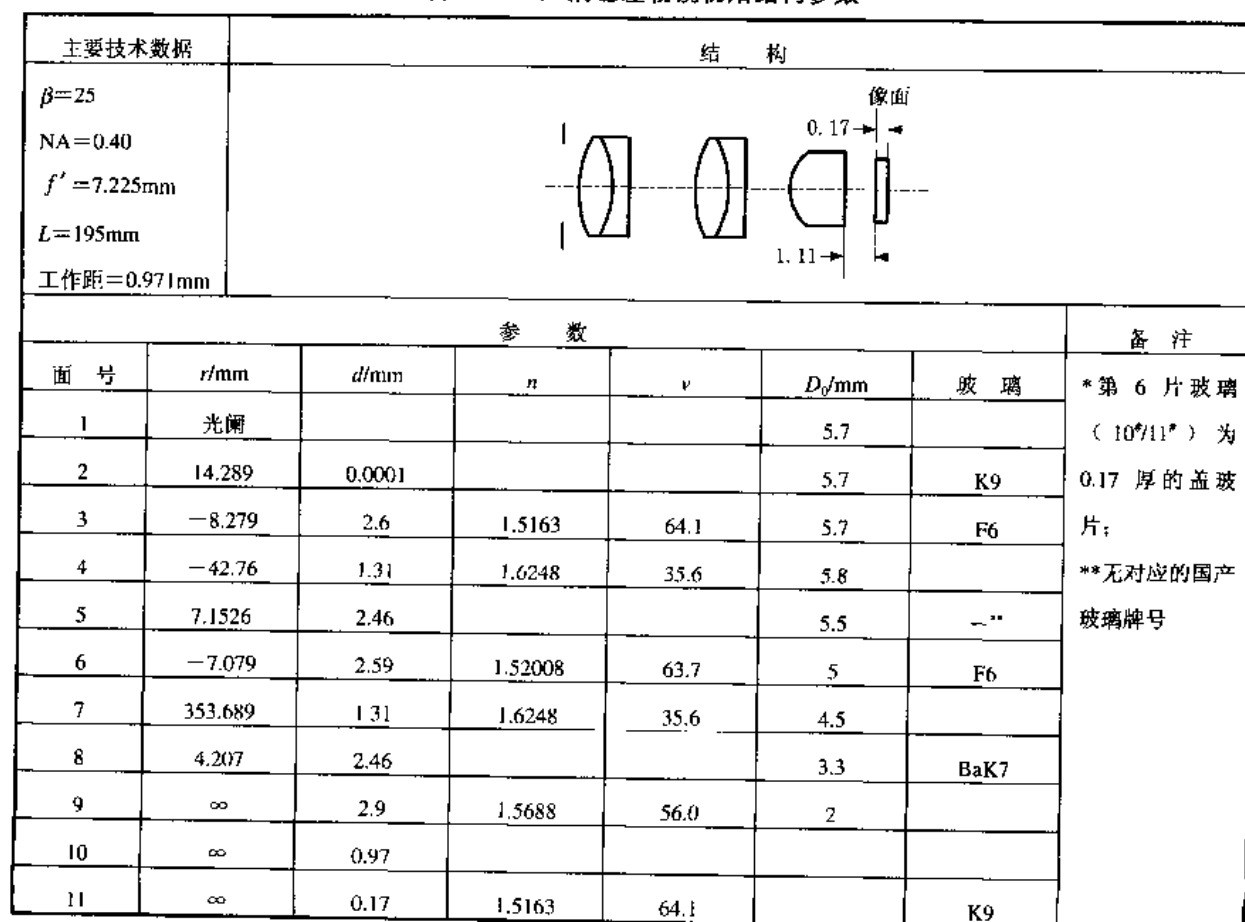 主要技术数据
结 构
β=25
NA=0.40
f′=7.225mm
L=195mm
工作距=0.971mm
像面
0.17
1.11
参 数
备 注
面 号 r/mm d/mm n ν D₀/mm 玻 璃
1 光阑 5.7
2 14.289 0.0001 5.7 K9
3 −8.279 2.6 1.5163 64.1 5.7 F6
4 −42.76 1.31 1.6248 35.6 5.8
5 7.1526 2.46 5.5 –**
6 −7.079 2.59 1.52008 63.7 5 F6
7 353.689 1.31 1.6248 35.6 4.5
8 4.207 2.46 3.3 BaK7
9 ∞ 2.9 1.5688 56.0 2
10 ∞ 0.97
11 ∞ 0.17 1.5163 64.1 K9
*第 6 片玻璃
(10#/11#)为
0.17 厚的盖玻
片;
**无对应的国产
玻璃牌号